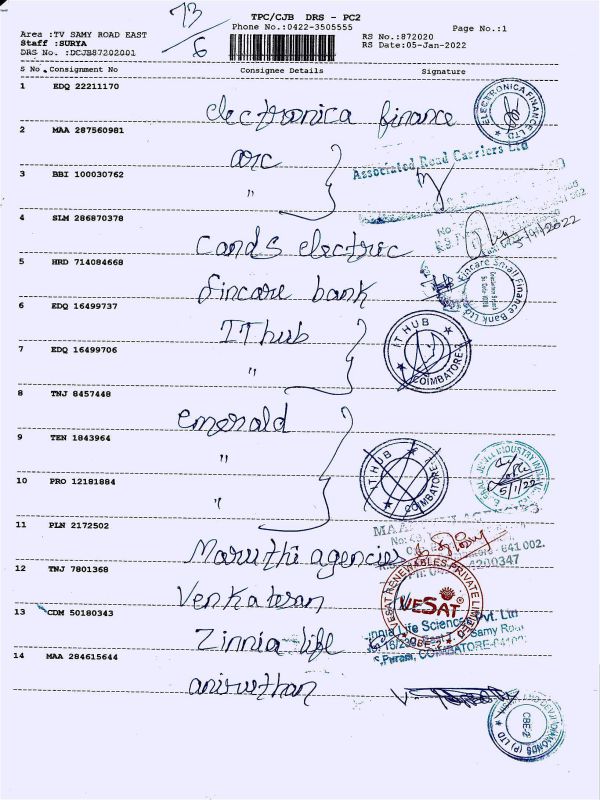 73/6
TPC/CJB DRS - PC2
Phone No.:0422-3505555
Page No.:1
Area :TV SAMY ROAD EAST
RS No.:872020
Staff :SURYA
RS Date:05-Jan-2022
DRS No. :DCJB87202001
S No. Consignment No Consignee Details Signature
1 EDQ 22211170
electronica finance
ELECTRONICA FINANCE LTD
2 MAA 287560981
arc
Associated Road Carriers Ltd
3 BBI 100030762
"
4 SLM 286870378
Cands electric
5/1/2022
5 HRD 714084668
fincare bank
Fincare Small Finance Bank Ltd
6 EDQ 16499737
IThub
IT HUB COIMBATORE-2
7 EDQ 16499706
"
8 TNJ 8457448
emerald
9 TEN 1843964
"
IT HUB COIMBATORE-2
10 PRO 12181884
"
5/1/22
11 PLN 2172502
Maruthi agencies
641 002.
12 TNJ 7801368
Venkatesan
VESAT RENEWABLES PRIVATE LIMITED
VESAT
13 CDM 50180343
Zinnia life
Life Sciences Pvt. Ltd
Samy Road
COIMBATORE
14 MAA 284615644
anirudhan
DIAMONDS (P) LTD
CBE-2